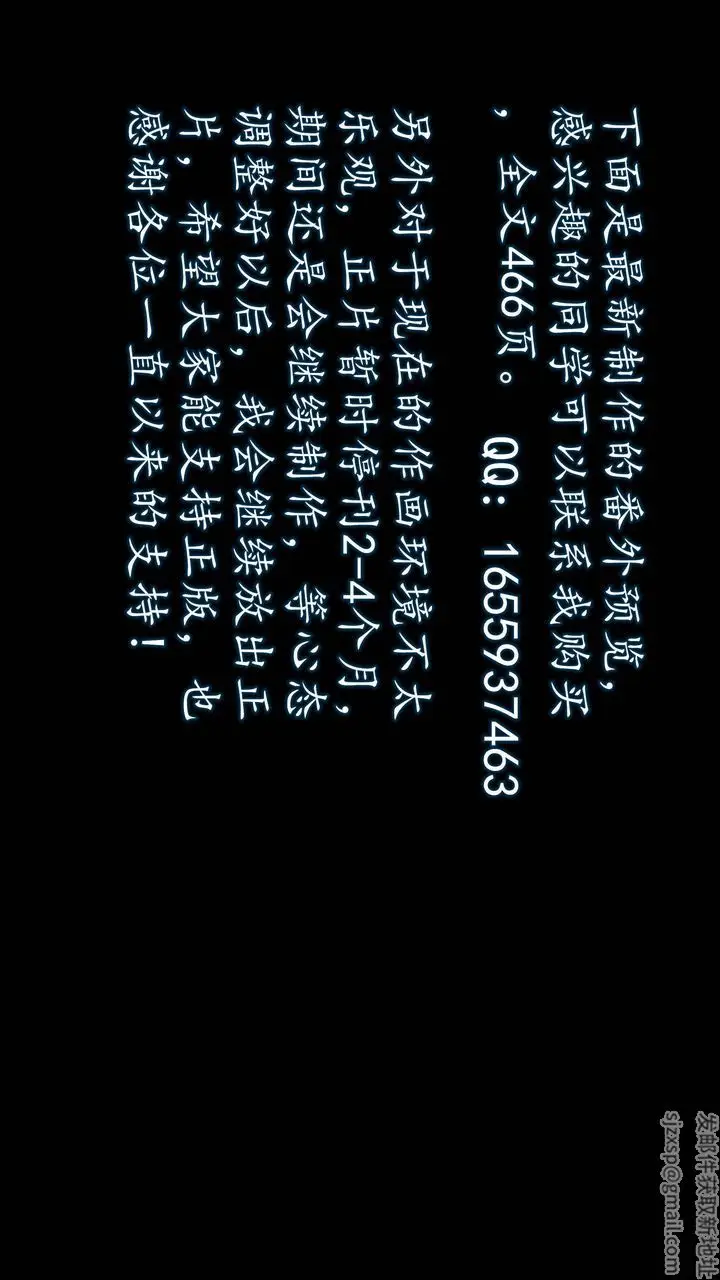 下面是最新制作的番外预览,
感兴趣的同学可以联系我购买
, 全文466页。 QQ: 1655937463
另外对于现在的作画环境不太
乐观, 正片暂时停刊2-4个月,
期间还是会继续制作, 等心态
调整好以后, 我会继续放出正
片, 希望大家能支持正版, 也
感谢各位一直以来的支持!
发邮件获取新地址
sjzxsp@gmail.com